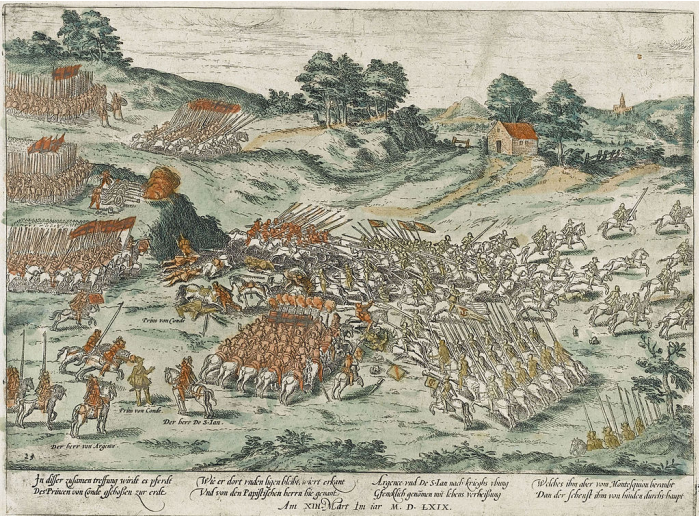 Printz von Conde
Prins von Conde
Der herr De S. Ian.
Der herr von Argence
24
In diser zusamen treffung wirdt es pferdt
Des Princen von Conde gschossen zur erdt.
Wie er dort vnden ligen bleibt, wirt erkant
Vnd von den Papistischen herrn hie genant.
Argence vnd De S. Ian nach kriegs vbung
Gfencklich genomen mit lebens verheissung
Welches ihn aber vom Montesquiou beraubt
Dan der schenst ihm von hinden durchs haupt
Am XIII. Mart Im iar M. D. LXIX.